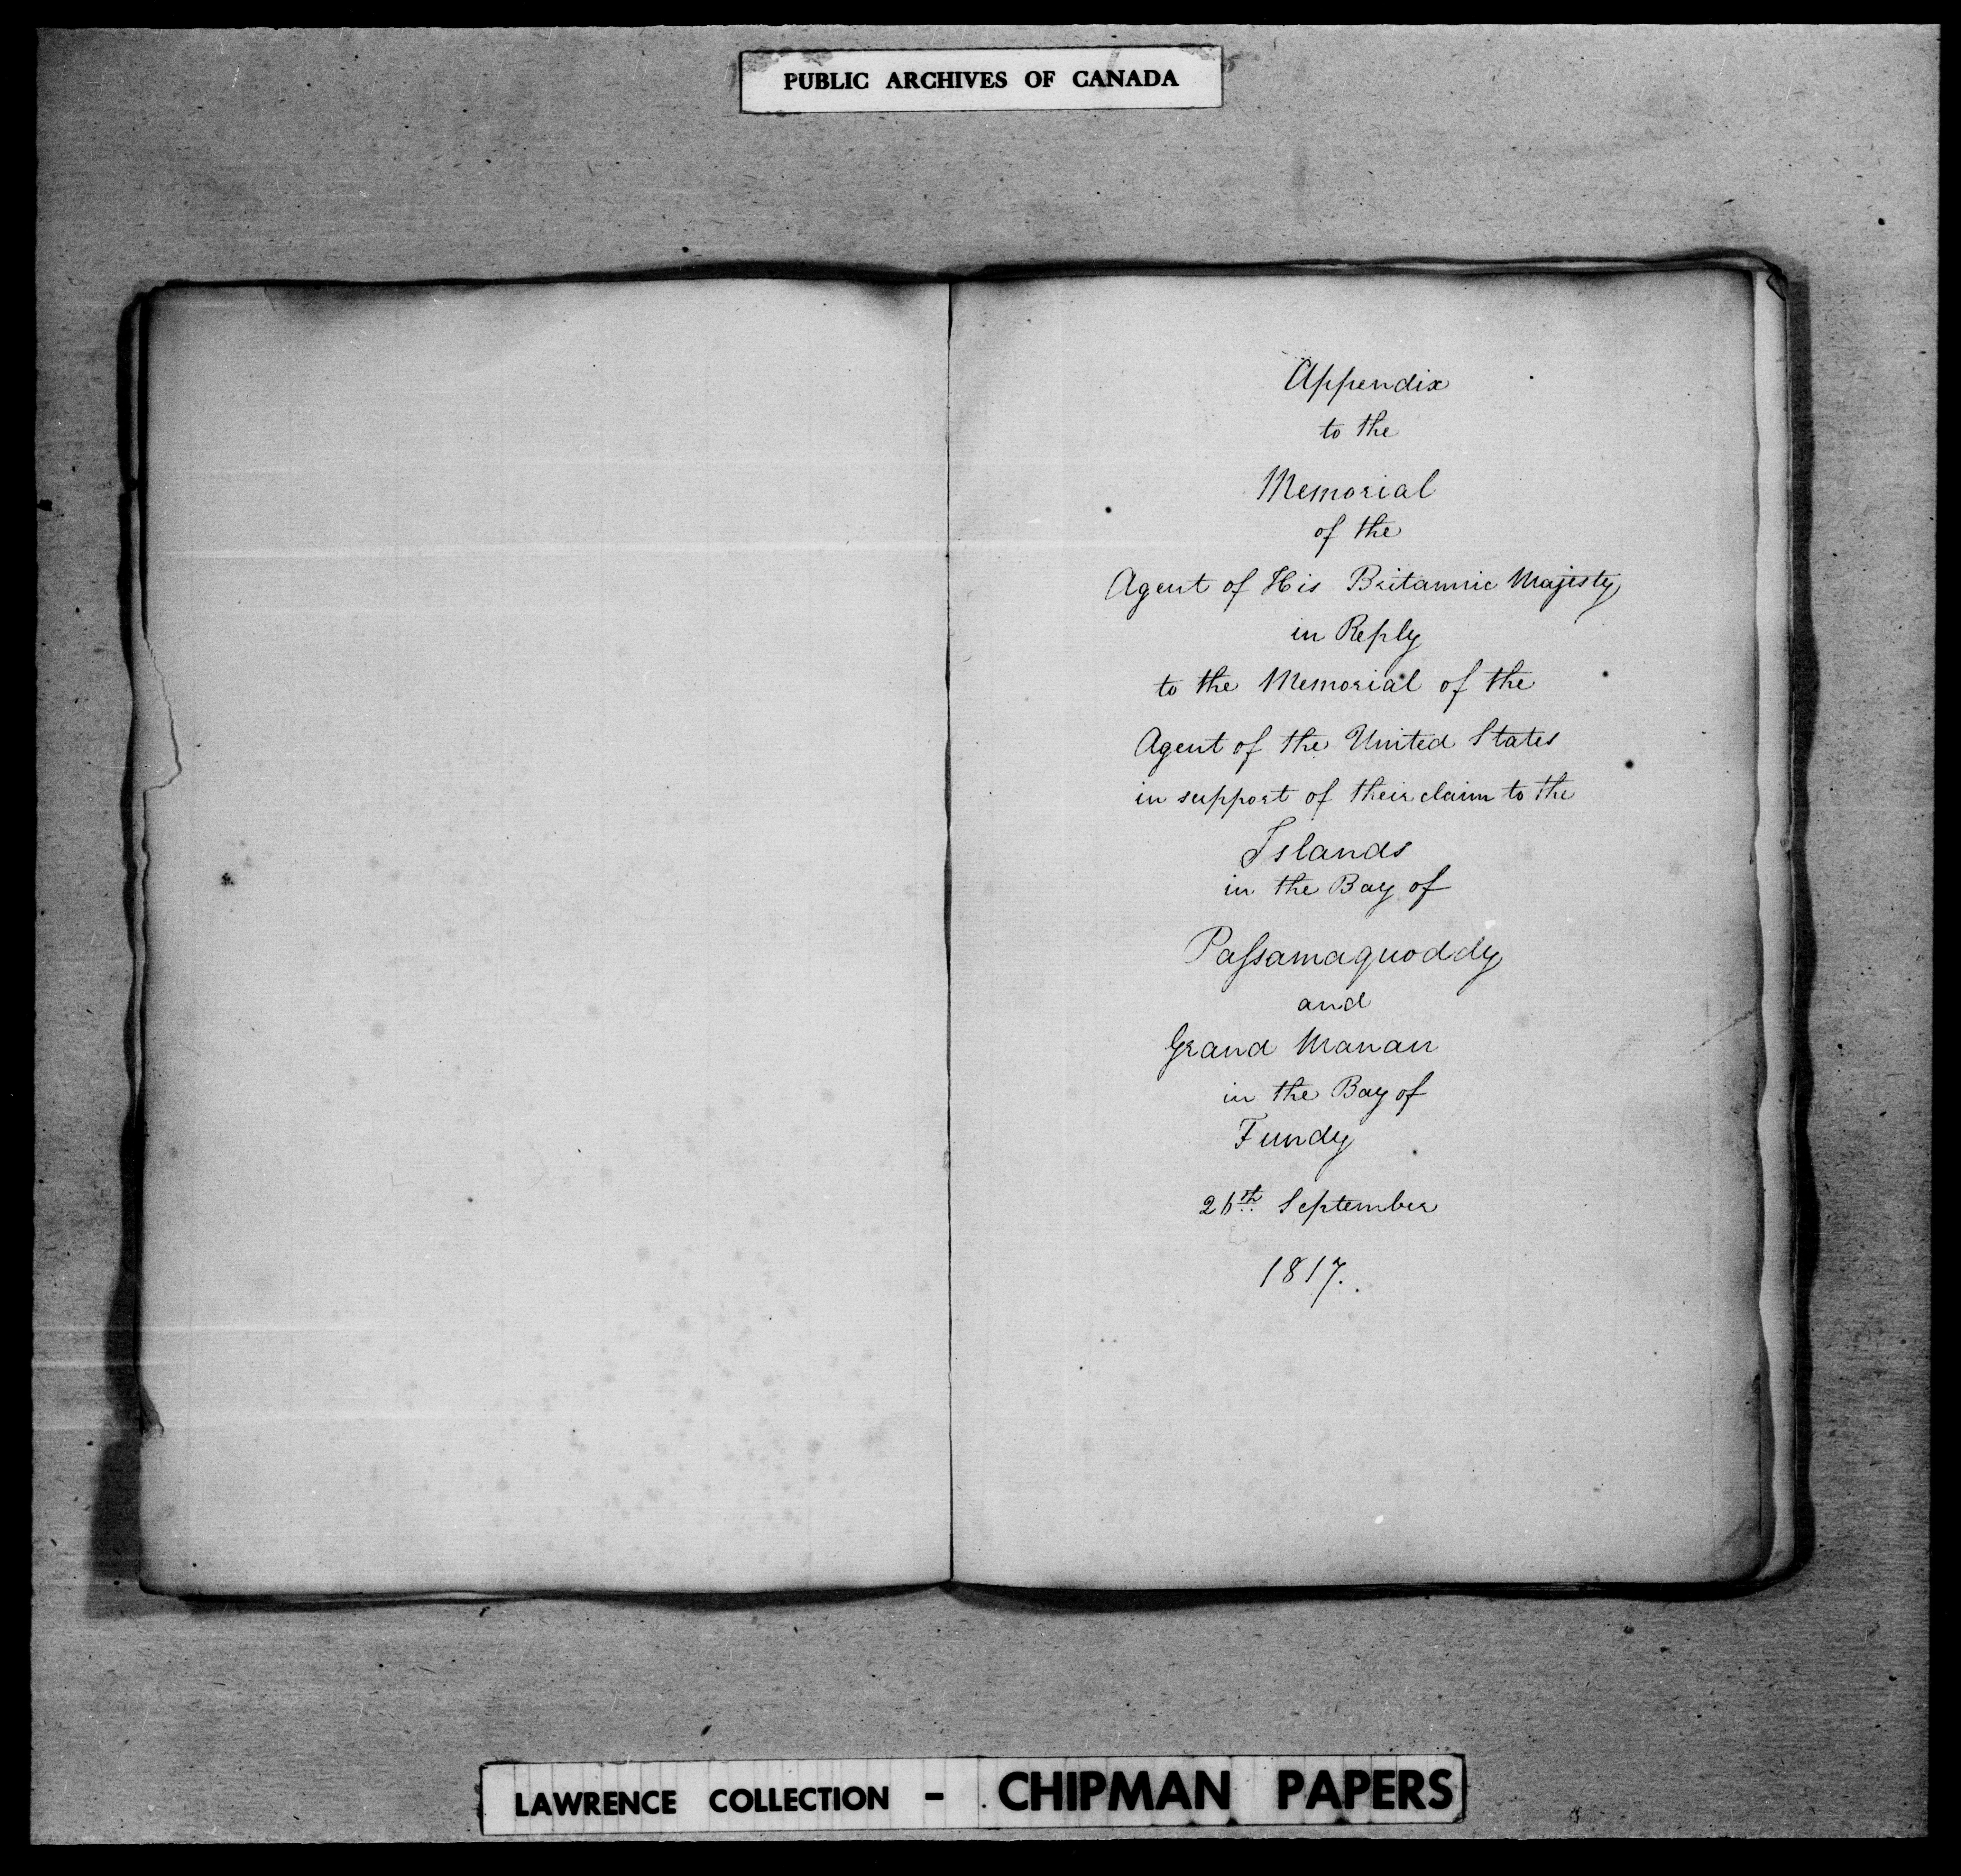 PUBLIC ARCHIVES OF CANADA
Appendix
to the
Memorial
of the
Agent of His Britannic Majesty
in Reply
to the Memorial of the
Agent of the United States
in support of their claim to the
Islands
in the Bay of
Paſsamaquoddy
and
Grand Manan
in the Bay of
Fundy
26th September
1817.
LAWRENCE COLLECTION - CHIPMAN PAPERS